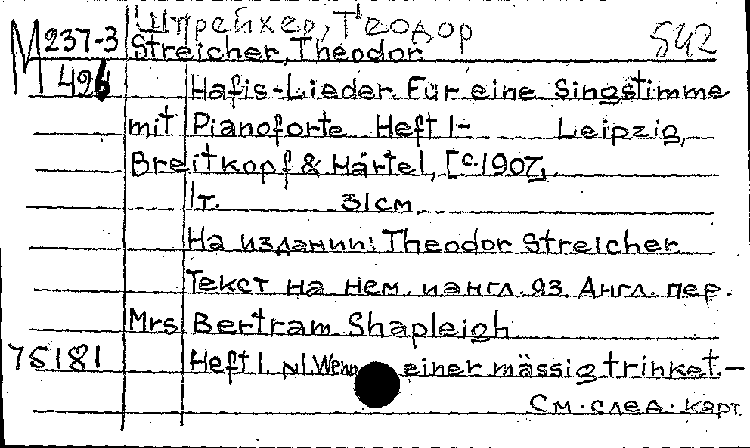 Штрейхер, Теодор
М 237-3 Streicher, Theodor 542
426 Hafis-Lieder. Für eine Singstimme
mit Pianoforte Heft 1- Leipzig,
Breitkopf & Härtel, [c 1907,
1т. 31см.
На издании: Theodor Streicher
Текст на нем. и англ. яз. Англ. пер.
Mrs Bertram Shapleigh
75181 Heft 1. N1. Wenn einer mässig trinket.—
См. след. карт.